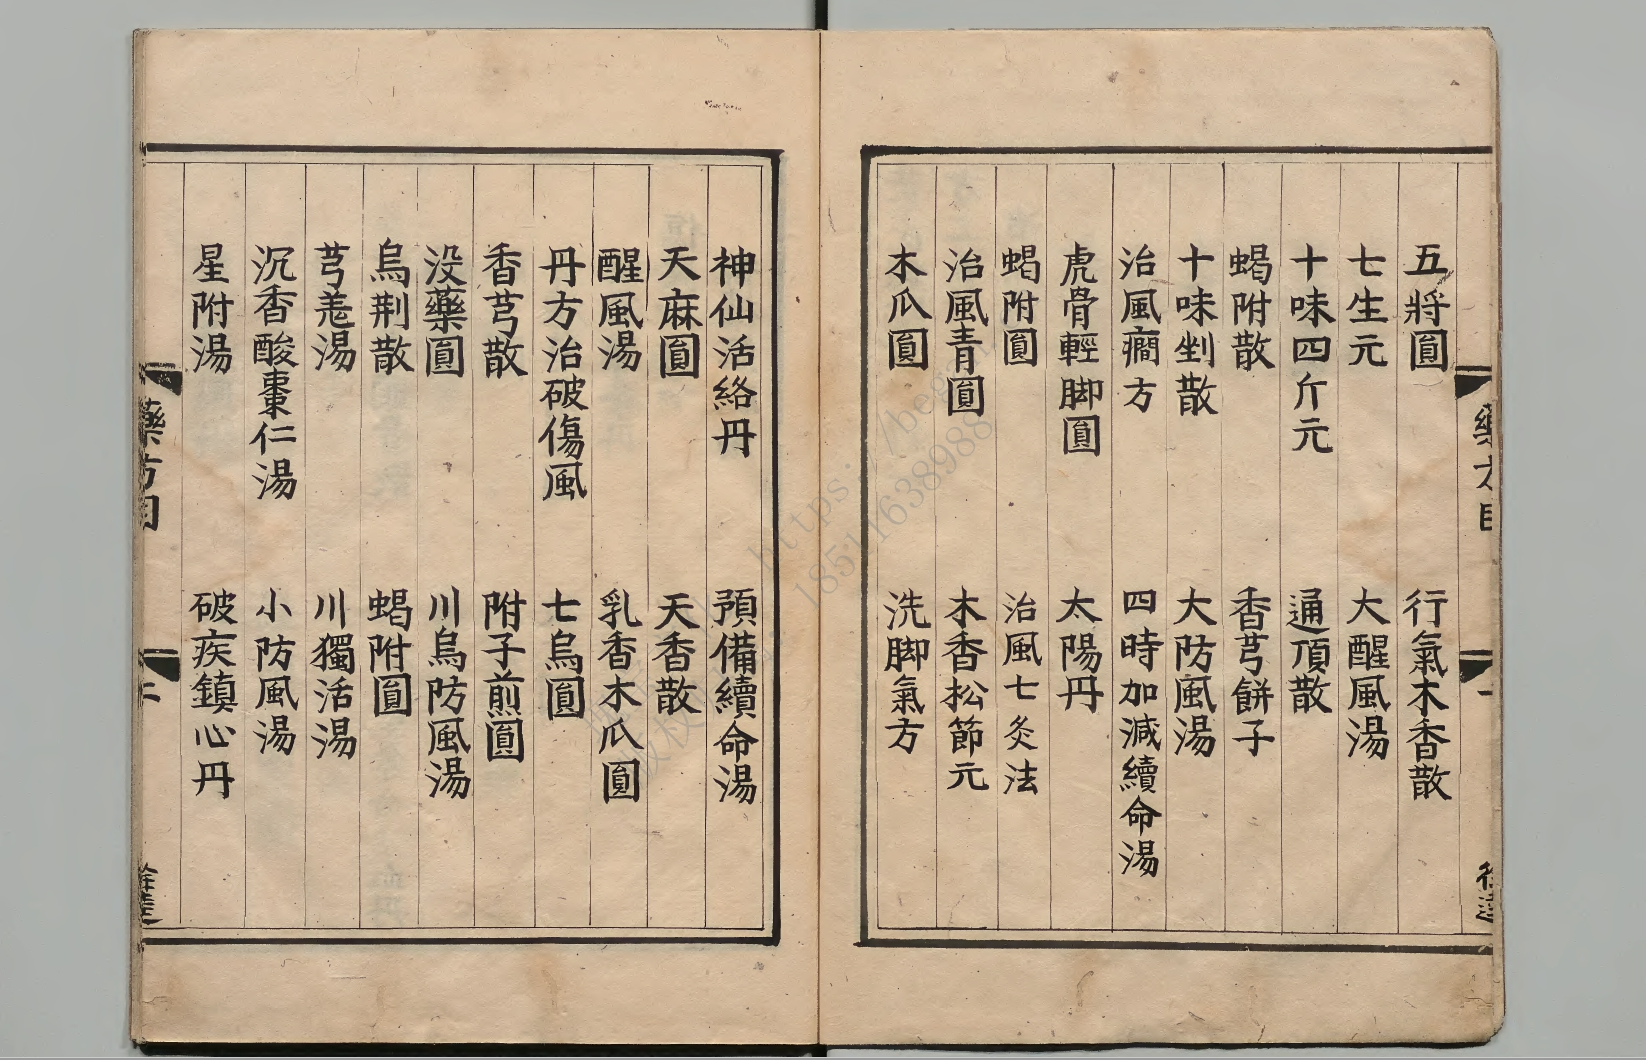 五將圓　行氣木香散
七生元　大醒風湯
十味四斤元　通頂散
蝎附散　香芎餅子
十味剉散　大防風湯
治風癇方　四時加減續命湯
虎骨輕脚圓　太陽丹
蝎附圓　治風七灸法
治風青圓　木香松節元
木瓜圓　洗脚氣方
神仙活絡丹　預備續命湯
天麻圓　天香散
醒風湯　乳香木瓜圓
丹方治破傷風　七烏圓
香芎散　附子煎圓
没藥圓　川烏防風湯
烏荆散　蝎附圓
芎羌湯　川獨活湯
沉香酸棗仁湯　小防風湯
星附湯　破疾鎮心丹
藥方目　二
18511638988